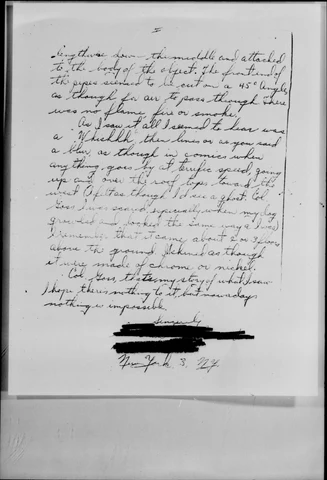 lengthwise down the middle and attached
to the body of the object. The front end of
the pipes seemed to be cut on a 45° angle
as though for air to pass through. There
was no flame fire or smoke.
As I saw it all I seemed to hear was
a "Whishhh" then lines or as you said
a blur, as though in comics when
anything goes by at terrific speed, going
up and over the roof tops toward the
west. I felt as though I'd seen a ghost. Col.
Goss I was scared, especially when my dog
growled and looked the same way I was.
I remember that it came about
above the ground. It shined as though
it were made of chrome or nickel.
Col. Goss, that's my story of what I saw
I hope there's nothing to it, but nowadays
nothing is impossible.
Sincerely
New York 3, N.Y.